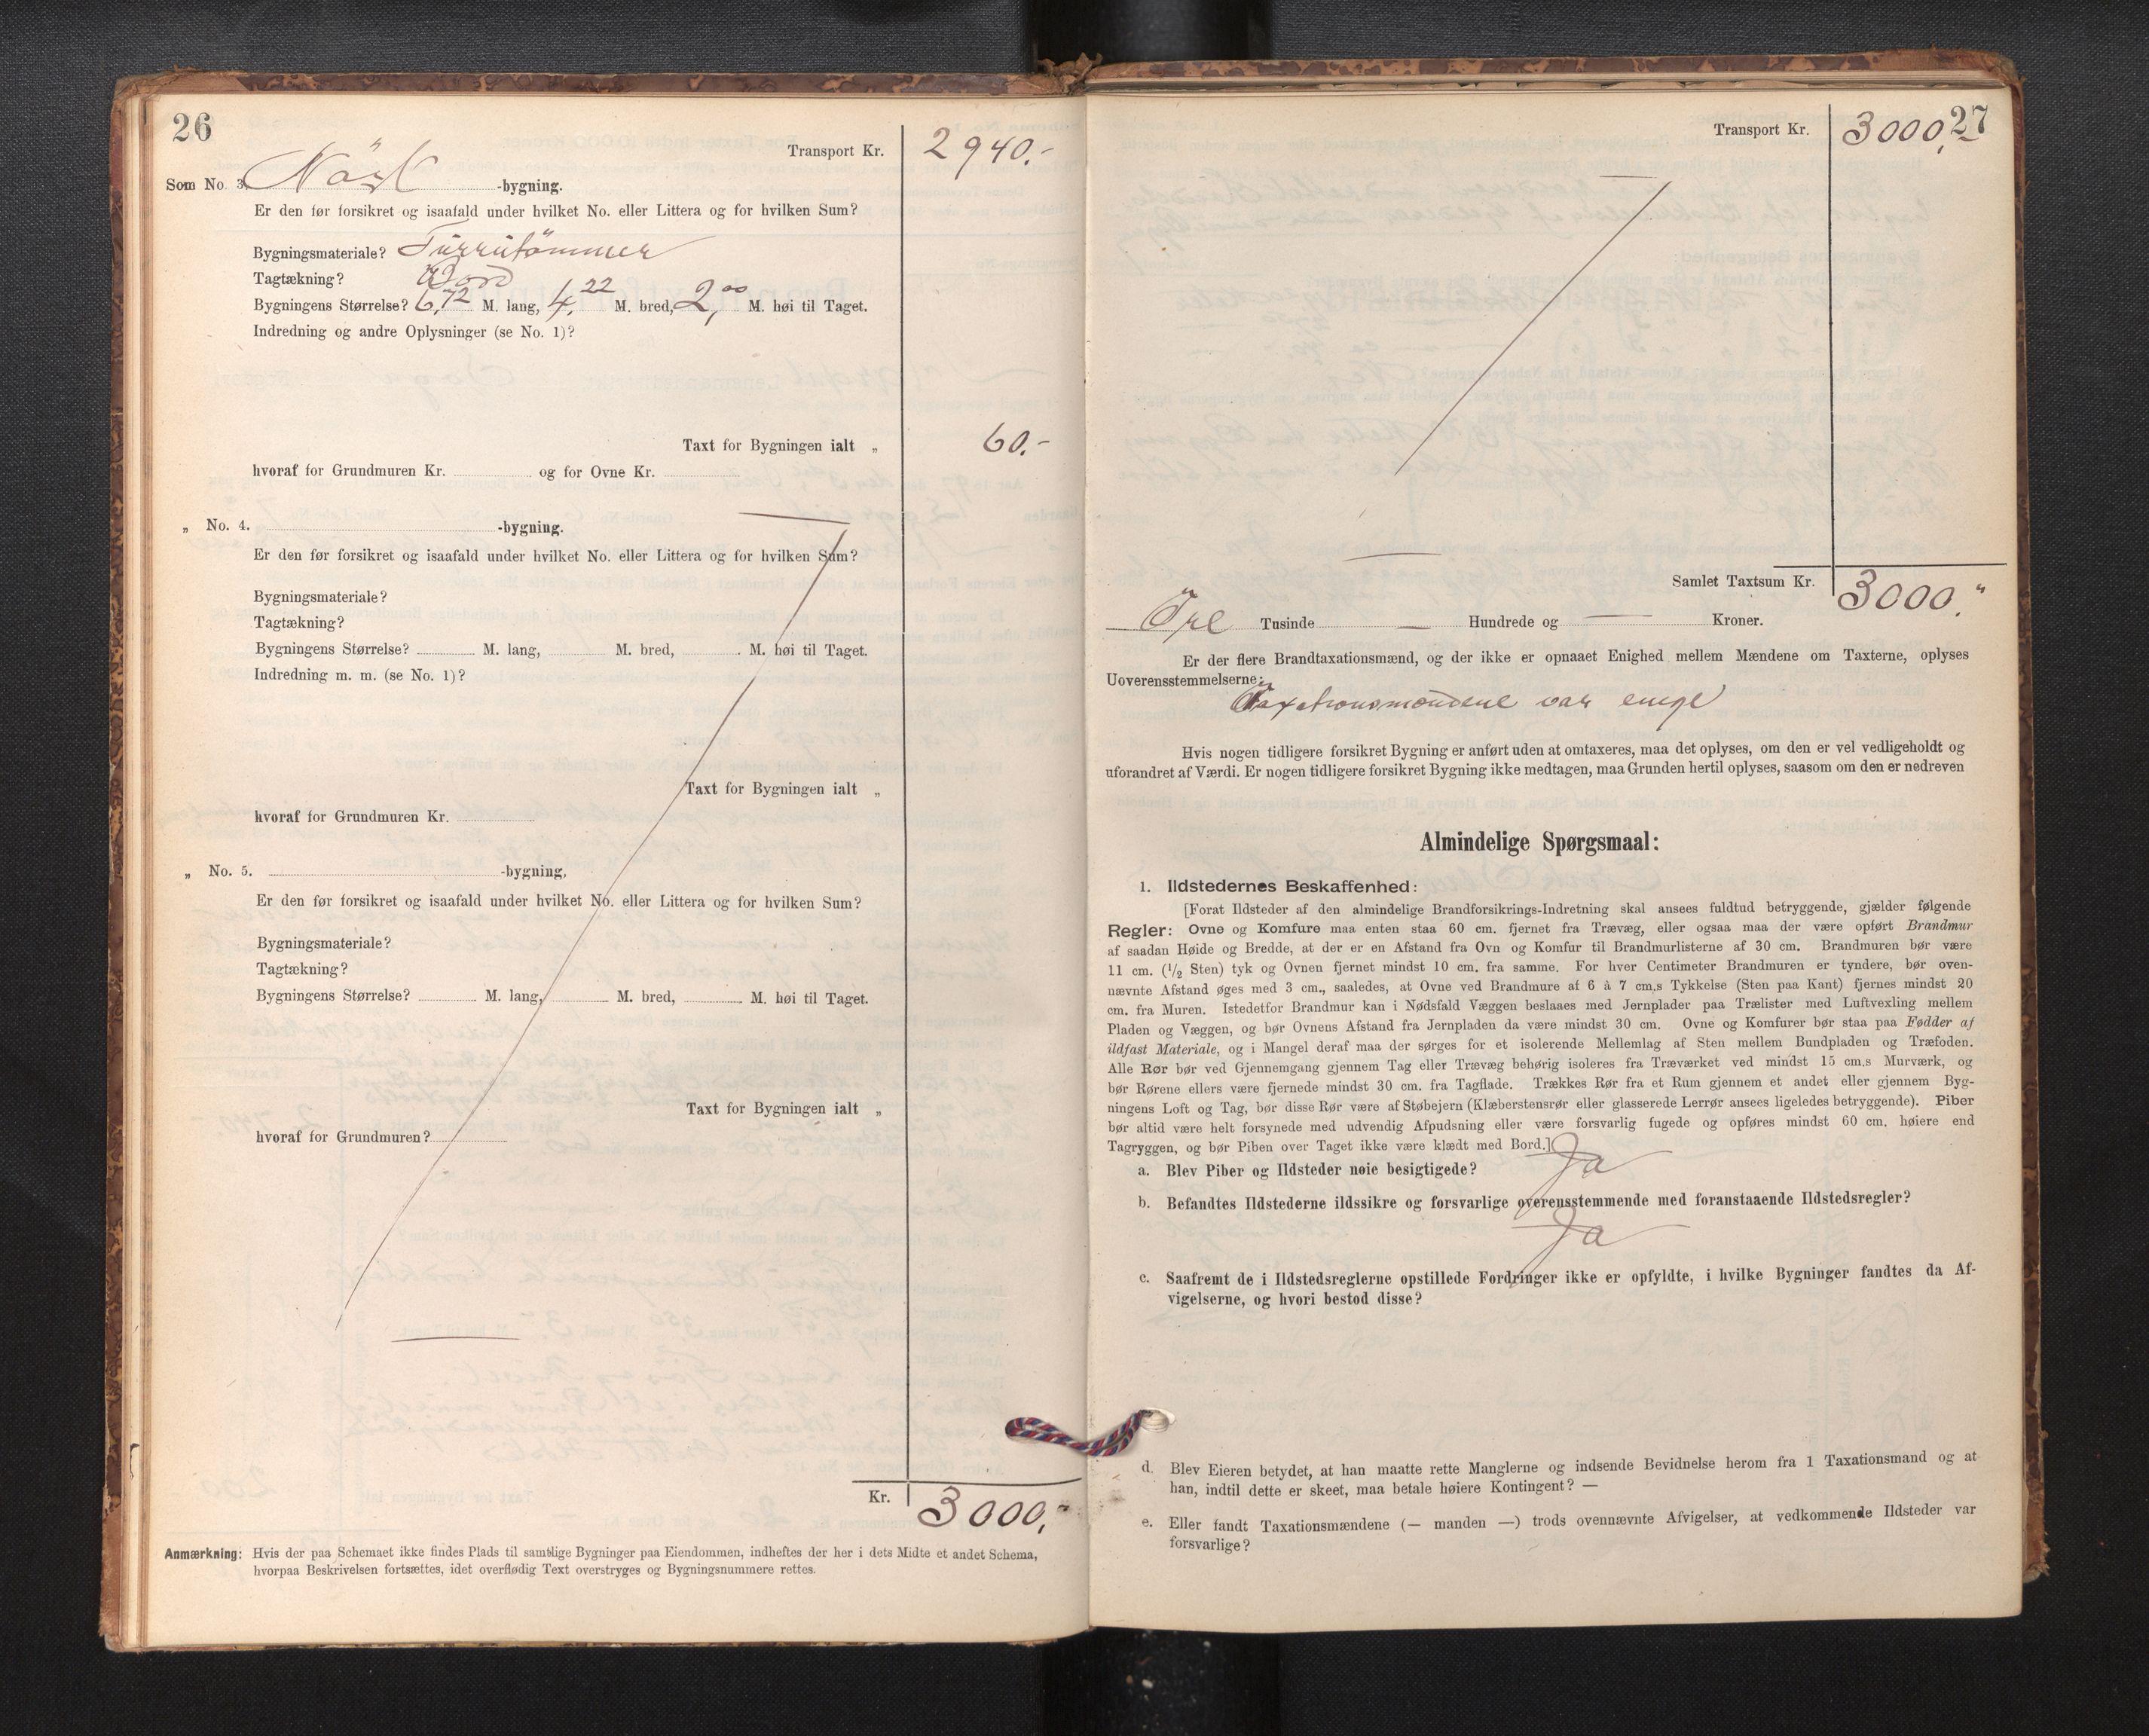 26
Transport Kr. 2940.-
Som No. 3. Nöst -bygning.
Er den før forsikret og isaafald under hvilket No. eller Littera og for hvilken Sum?
Bygningsmateriale? Fürrütömmer
Tagtækning? Bord
Bygningens Størrelse? 6,72 M. lang, 4,22 M. bred, 2,00 M. høi til Taget.
Indredning og andre Oplysninger (se No. 1)?
Taxt for Bygningen ialt „ 60.-
hvoraf for Grundmuren Kr. og for Ovne Kr.
„ No. 4. -bygning.
Er den før forsikret og isaafald under hvilket No. eller Littera og for hvilken Sum?
Bygningsmateriale?
Tagtækning?
Bygningens Størrelse? M. lang, M. bred, M. høi til Taget.
Indredning m. m. (se No. 1)?
Taxt for Bygningen ialt „
hvoraf for Grundmuren Kr.
„ No. 5. -bygning,
Er den før forsikret og isaafald under hvilket No. eller Littera og for hvilken Sum?
Bygningsmateriale?
Tagtækning?
Bygningens Størrelse? M. lang, M. bred, M. høi til Taget.
Taxt for Bygningen ialt „
hvoraf for Grundmuren?
Kr. 3000,-
Anmærkning: Hvis der paa Schemaet ikke findes Plads til samtlige Bygninger paa Eiendommen, indheftes der her i dets Midte et andet Schema,
hvorpaa Beskrivelsen fortsættes, idet overflødig Text overstryges og Bygningsnummere rettes.
27
Transport Kr. 3000,-
Samlet Taxtsum Kr. 3000."
Tre Tusinde — Hundrede og — Kroner.
Er der flere Brandtaxationsmænd, og der ikke er opnaaet Enighed mellem Mændene om Taxterne, oplyses
Uoverensstemmelserne:
Taxationsmændene var enige
Hvis nogen tidligere forsikret Bygning er anført uden at omtaxeres, maa det oplyses, om den er vel vedligeholdt og
uforandret af Værdi. Er nogen tidligere forsikret Bygning ikke medtagen, maa Grunden hertil oplyses, saasom om den er nedreven
Almindelige Spørgsmaal:
1. Ildstedernes Beskaffenhed:
[Forat Ildsteder af den almindelige Brandforsikrings-Indretning skal ansees fuldtud betryggende, gjælder følgende
Regler: Ovne og Komfure maa enten staa 60 cm. fjernet fra Trævæg, eller ogsaa maa der være opført Brandmur
af saadan Høide og Bredde, at der er en Afstand fra Ovn og Komfur til Brandmurlisterne af 30 cm. Brandmuren bør være
11 cm. (1/2 Sten) tyk og Ovnen fjernet mindst 10 cm. fra samme. For hver Centimeter Brandmuren er tyndere, bør oven-
nævnte Afstand øges med 3 cm., saaledes, at Ovne ved Brandmure af 6 à 7 cm.s Tykkelse (Sten paa Kant) fjernes mindst 20
cm. fra Muren. Istedetfor Brandmur kan i Nødsfald Væggen beslaaes med Jernplader paa Trælister med Luftvexling mellem
Pladen og Væggen, og bør Ovnens Afstand fra Jernpladen da være mindst 30 cm. Ovne og Komfurer bør staa paa Fødder af
ildfast Materiale, og i Mangel deraf maa der sørges for et isolerende Mellemlag af Sten mellem Bundpladen og Træfoden.
Alle Rør bør ved Gjennemgang gjennem Tag eller Trævæg behørig isoleres fra Træværket ved mindst 15 cm.s Murværk, og
bør Rørene ellers være fjernede mindst 30 cm. fra Tagflade. Trækkes Rør fra et Rum gjennem et andet eller gjennem Byg-
ningens Loft og Tag, bør disse Rør være af Støbejern (Klæberstensrør eller glasserede Lerrør ansees ligeledes betryggende). Piber
bør altid være helt forsynede med udvendig Afpudsning eller være forsvarlig fugede og opføres mindst 60 cm. høiere end
Tagryggen, og bør Piben over Taget ikke være klædt med Bord.]
a. Blev Piber og Ildsteder nøie besigtigede? Ja
b. Befandtes Ildstederne ildssikre og forsvarlige overensstemmende med foranstaaende Ildstedsregler?
Ja
c. Saafremt de i Ildstedsreglerne opstillede Fordringer ikke er opfyldte, i hvilke Bygninger fandtes da Af-
vigelserne, og hvori bestod disse?
d. Blev Eieren betydet, at han maatte rette Manglerne og indsende Bevidnelse herom fra 1 Taxationsmand og at
han, indtil dette er skeet, maa betale høiere Kontingent? —
e. Eller fandt Taxationsmændene (— manden —) trods ovennævnte Afvigelser, at vedkommende Ildsteder var
forsvarlige?